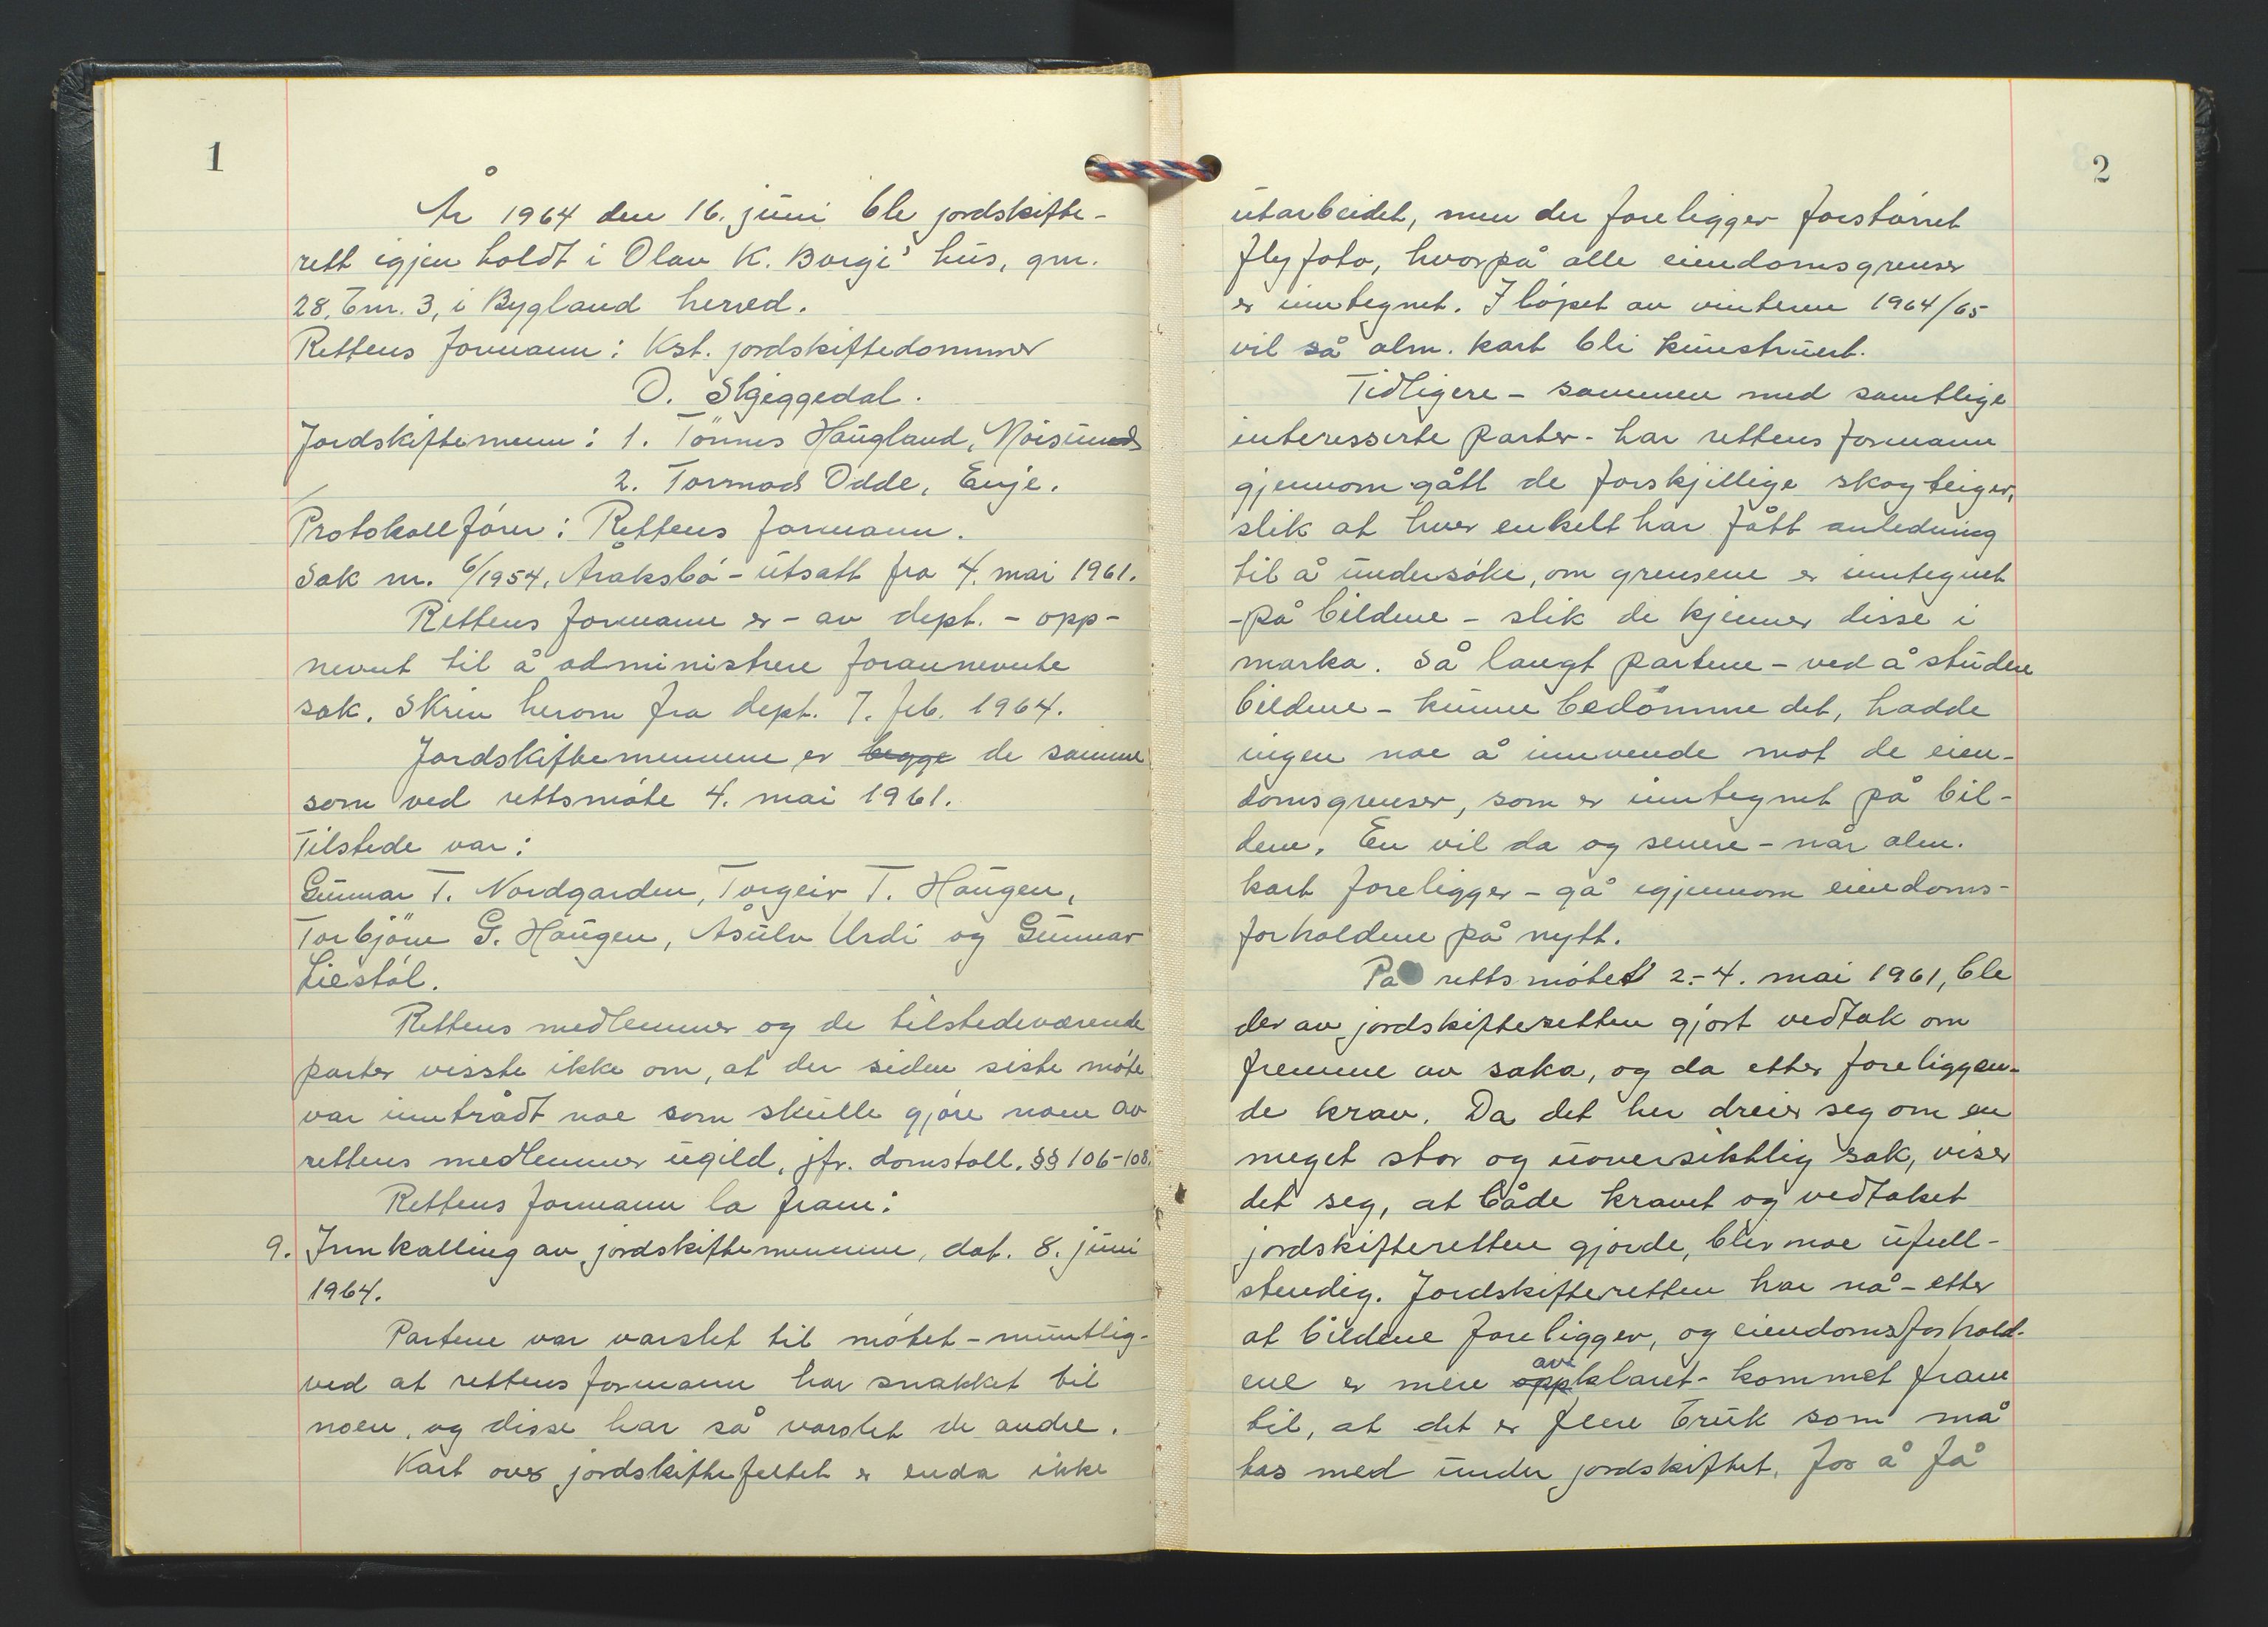 1
År 1964 den 16. juni ble jordskifte-
rett igjen holdt i Olav K. Borgi's hus, gnr.
28, bnr. 3, i Bygland herred.
Rettens formann: Kst. jordskiftedommer
O. Skjeggedal.
Jordskiftemenn: 1. Tönnes Haugland, Moisund
2. Tormod Odde, Evje.
Protokollfører: Rettens formann.
Sak nr. 6/1954, Åraksbó - utsatt fra 4. mai 1961.
Rettens formann er - av dept. - opp-
nevnt til å administrere forannevnte
sak. Skriv herom fra dept. 7. feb. 1964.
Jordskiftemennene er begge de samme
som ved rettsmóte 4. mai 1961.
Tilstede var:
Gunnar T. Nordgarden, Torgeir T. Haugen,
Torbjörn G. Haugen, Åsulv Urdi og Gunnar
Liestól.
Rettens medlemmer og de tilstedeværende
parter visste ikke om, at der siden siste móte
var inntrådt noe som skulle gjóre noen av
rettens medlemmer ugild, jfr. domstoll. §§ 106-108.
Rettens formann la fram:
9. Innkalling av jordskiftemennene, dat. 8. juni
1964.
Partene var varslet til mótet - muntlig -
ved at rettens formann har snakket til
noen, og disse har så varslet de andre.
Kart over jordskiftefeltet er enda ikke
2
utarbeidet, men der foreligger forstórret
flyfoto, hvorpå alle eiendomsgrenser
er inntegnet. I lópet av vinteren 1964/65
vil så alm. kart bli kunstruert.
Tidligere - sammen med samtlige
interesserte parter - har rettens formann
gjennomgått de forskjellige skogteiger,
slik at hver enkelt har fått anledning
til å undersóke, om grensene er inntegnet
- på bildene - slik de kjenner disse i
marka. Så langt partene - ved å studere
bildene - kunne bedömme det, hadde
ingen noe å innvende mot de eien-
domsgrenser, som er inntegnet på bil-
dene. En vil da og senere - når alm.
kart foreligger - gå igjennom eiendoms-
forholdene på nytt.
På rettsmótet 2.-4. mai 1961, ble
der av jordskifteretten gjort vedtak om
fremme av saka, og da etter foreliggen-
de krav. Da det her dreier seg om en
meget stor og uoversiktlig sak, viser
det seg, at både kravet og vedtaket
jordskifteretten gjorde, blir noe ufull-
stendig. Jordskifteretten har nå - etter
at bildene foreligger, og eiendomsforhold-
av
ene er mere oppklaret - kommet fram
til, at det er flere bruk som må
tas med under jordskiftet, for å få